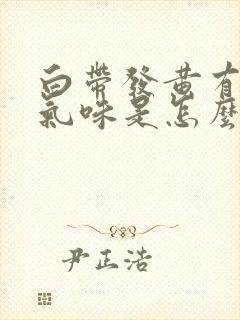 白帶發黃有
氣味是怎麼
尹正浩